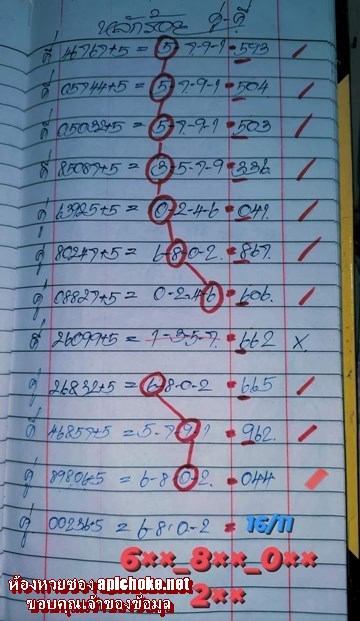 หลักร้อย คู่-คี่
คี่ 46767+5 = 5-7-9-1 = 593 /
คู่ 05744+5 = 5-7-9-1 = 504 /
คู่ 05032+5 = 5-7-9-1 = 503 /
คี่ 85087+5 = 3-5-7-9 = 336 /
คู่ 63925+5 = 0-2-4-6 = 041 /
คู่ 80247+5 = 6-8-0-2 = 867 /
คู่ 08827+5 = 0-2-4-6 = 606 /
คี่ 26099+5 = 1-3-5-7 = 662 X
คู่ 26832+5 = 6-8-0-2 = 665 /
คี่ 46857+5 = 5-7-9-1 = 962 /
คู่ 89806+5 = 6-8-0-2 = 044 /
คู่ 00236+5 = 6-8-0-2 = 15/11
6××_8××_0××
2××
ห้องหวยซอง aplchoke.net
ขอบคุณเจ้าของข้อมูล